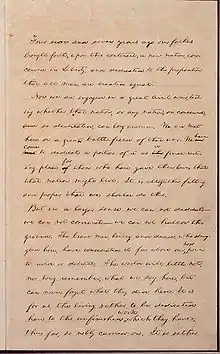 Four score and seven years ago our fathers
brought forth, upon this continent, a new nation, con-
ceived in Liberty, and dedicated to the proposition
that all men are created equal.
Now we are engaged in a great civil war, test-
ing whether that nation, or any nation, so conceived,
and so dedicated, can long endure. We are met
here on a great battle-field of that war. We have
come to dedicate a portion of it as a final rest-
ing place for those who here gave their lives that
that nation might live. It is altogether fitting
and proper that we should do this.
But in a larger sense we can not dedicate
we can not consecrate we can not hallow this
ground. The brave men, living and dead, who strug-
gled here, have consecrated it far above our poor power
to add or detract. The world will little note,
nor long remember, what we say here, but
can never forget what they did here. It is
for us, the living, rather to be dedicated
here to the unfinished work which they have,
thus far, so nobly carried on. It is rather